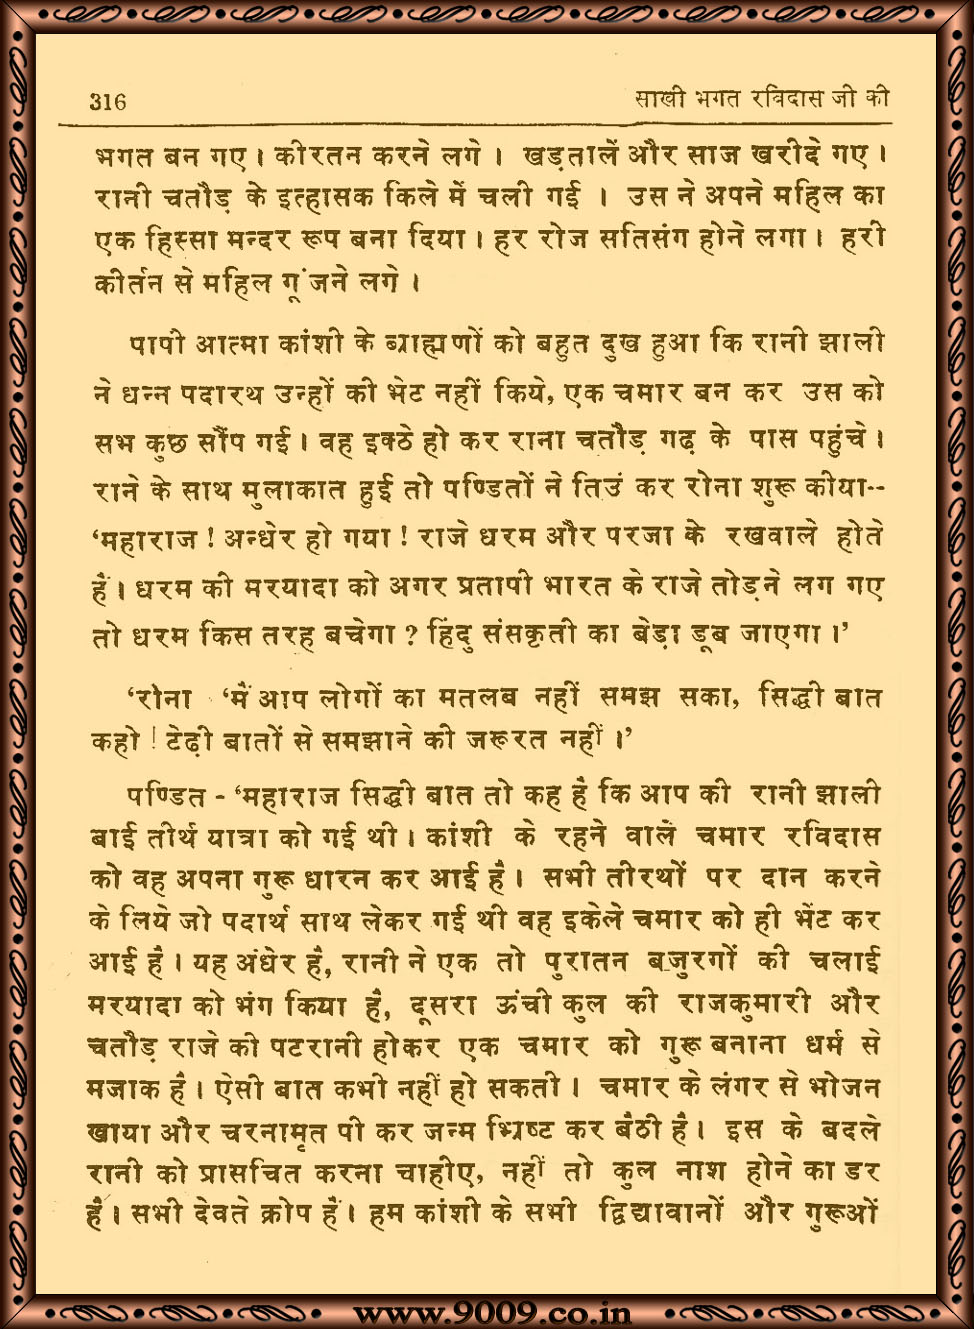 316 साखी भगत रविदास जी की
भगत बन गए। कीरतन करने लगे। खड़तालें और साज खरीदे गए।
रानी चतौड़ के इत्हासक किले में चली गई । उस ने अपने महिल का
एक हिस्सा मन्दर रूप बना दिया। हर रोज सतिसंग होने लगा। हरी
कीर्तन से महिल गूंजने लगे।
पापी आत्मा कांशी के ब्राह्मणों को बहुत दुख हुआ कि रानी झाली
ने धन्न पदारथ उन्हों की भेट नहीं किये, एक चमार बन कर उस को
सभ कुछ सौंप गई। वह इक्ठे हो कर राना चतौड़ गढ़ के पास पहुंचे।
राने के साथ मुलाकात हुई तो पण्डितों ने तिउं कर रोना शुरू कीया--
‘महाराज ! अन्धेर हो गया ! राजे धरम और परजा के रखवाले होते
हैं। धरम की मरयादा को अगर प्रतापी भारत के राजे तोड़ने लग गए
तो धरम किस तरह बचेगा ? हिंदु संसकृती का बेड़ा डूब जाएगा।’
‘राना ‘मैं आप लोगों का मतलब नहीं समझ सका, सिद्धी बात
कहो ! टेढ़ी बातों से समझाने की जरूरत नहीं।’
पण्डित - ‘महाराज सिद्धी बात तो कह है कि आप की रानी झाली
बाई तीर्थ यात्रा को गई थी। कांशी के रहने वाले चमार रविदास
को वह अपना गुरू धारन कर आई है। सभी तीरथों पर दान करने
के लिये जो पदार्थ साथ लेकर गई थी वह इकेले चमार को ही भेंट कर
आई है। यह अंधेर है, रानी ने एक तो पुरातन बजुरगों की चलाई
मरयादा को भंग किया है, दूसरा ऊंची कुल की राजकुमारी और
चतौड़ राजे की पटरानी होकर एक चमार को गुरू बनाना धर्म से
मजाक है। ऐसी बात कभी नहीं हो सकती। चमार के लंगर से भोजन
खाया और चरनामृत पी कर जन्म भ्रिष्ट कर बैठी है। इस के बदले
रानी को प्रासचित करना चाहीए, नहीं तो कुल नाश होने का डर
है। सभी देवते क्रोप हैं। हम कांशी के सभी द्विद्यावानों और गुरूओं
www.9009.co.in